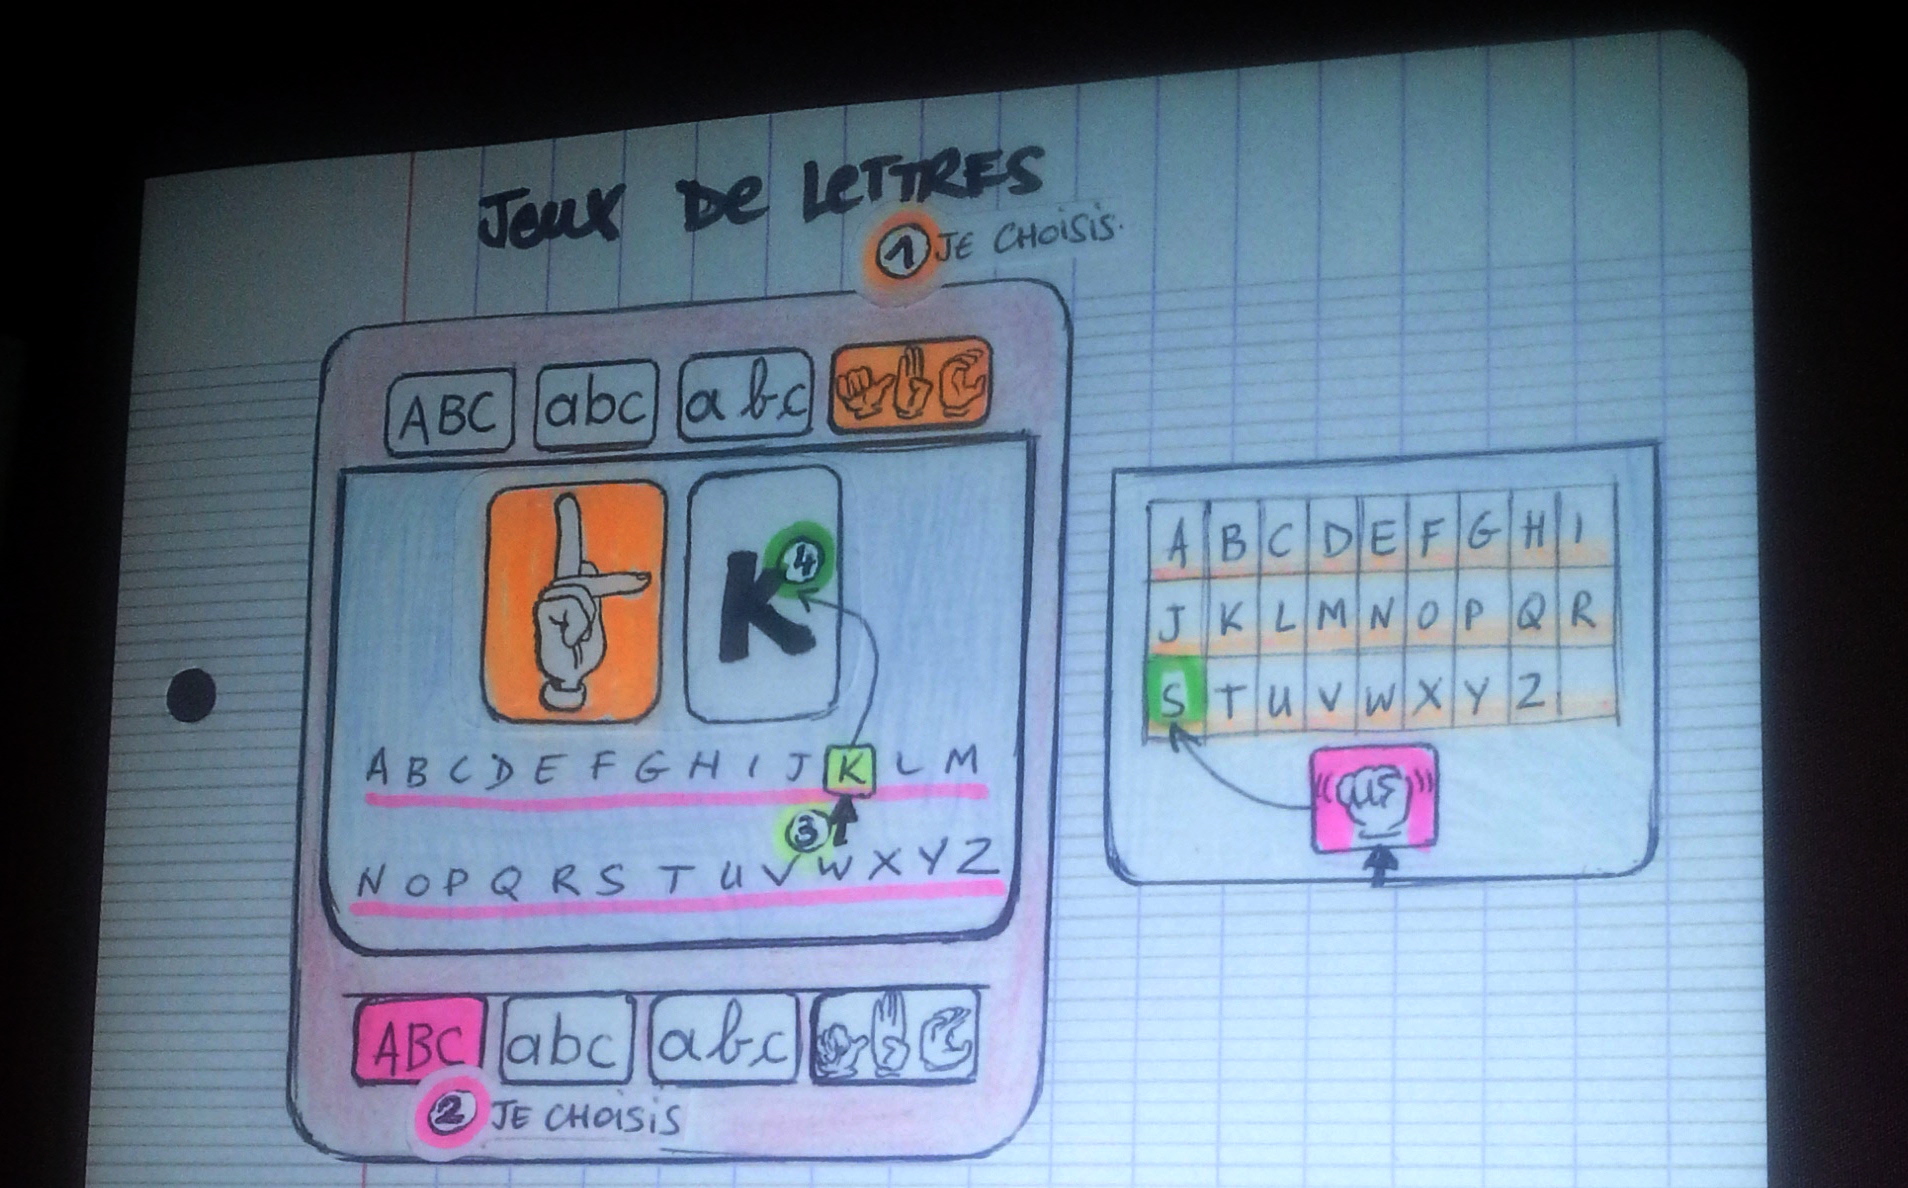 JEUX DE LETTRES
1 JE CHOISIS.
ABC abc abc
K 4
A B C D E F G H I J K L M
3
N O P Q R S T U V W X Y Z
ABC abc abc
2 JE CHOISIS
A B C D E F G H I
J K L M N O P Q R
S T U V W X Y Z